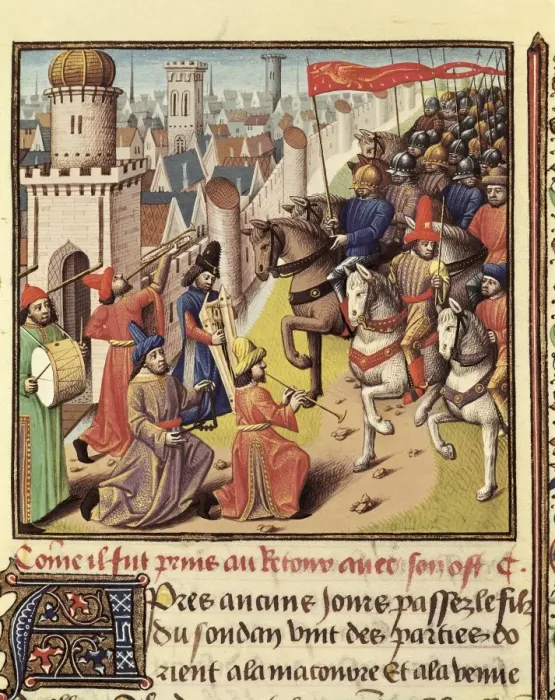 Come il fut prins au Retour avec son ost C.
Apres aucuns Jours passez le filz
du soudan vint des parties do
rient a la maconore Et a la venue